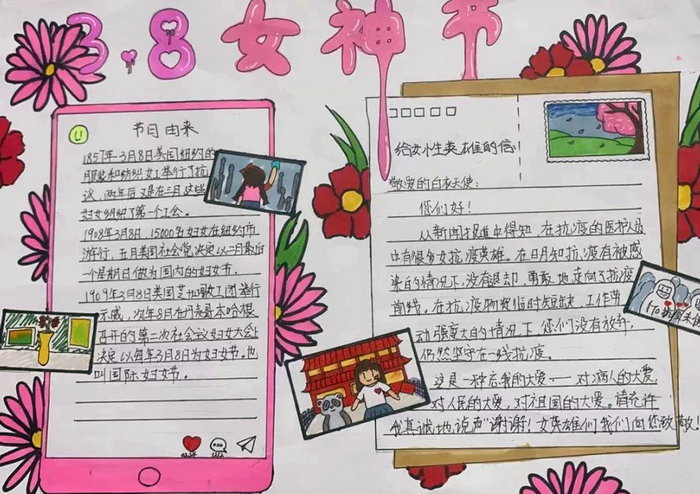 3.8女神节
节日由来
1857年3月8日美国纽约的
服装和纺织女工举行了抗
议,两年后又是在三月这些
妇女组织了第一个工会。
1908年3月8日,15000名妇女在纽约市
游行,五月美国社会党决定以二月最后
一个星期日做为国内的妇女节。
1909年3月8日美国芝加哥女工团举行
示威,次年8月在丹麦哥本哈根
召开的第二次社会议妇女大会上
决定以每年3月8日为妇女节。也
叫国际妇女节。
给女性英雄的信:
敬爱的白衣天使:
你们好!
从新闻报道中得知,在抗疫的医护人员
中有很多女抗疫英雄。在明知抗疫有被感
染的情况下,没有退却,勇敢地走向了抗疫
前线。在抗疫物资临时短缺、工作劳
动强度大的情况下,你们没有放弃,
仍然坚守在一线抗疫。
这是一种忘我的大爱——对病人的大爱,
对人民的大爱,对祖国的大爱。请允许
我真诚地说声"谢谢!女英雄们我们向您致敬!